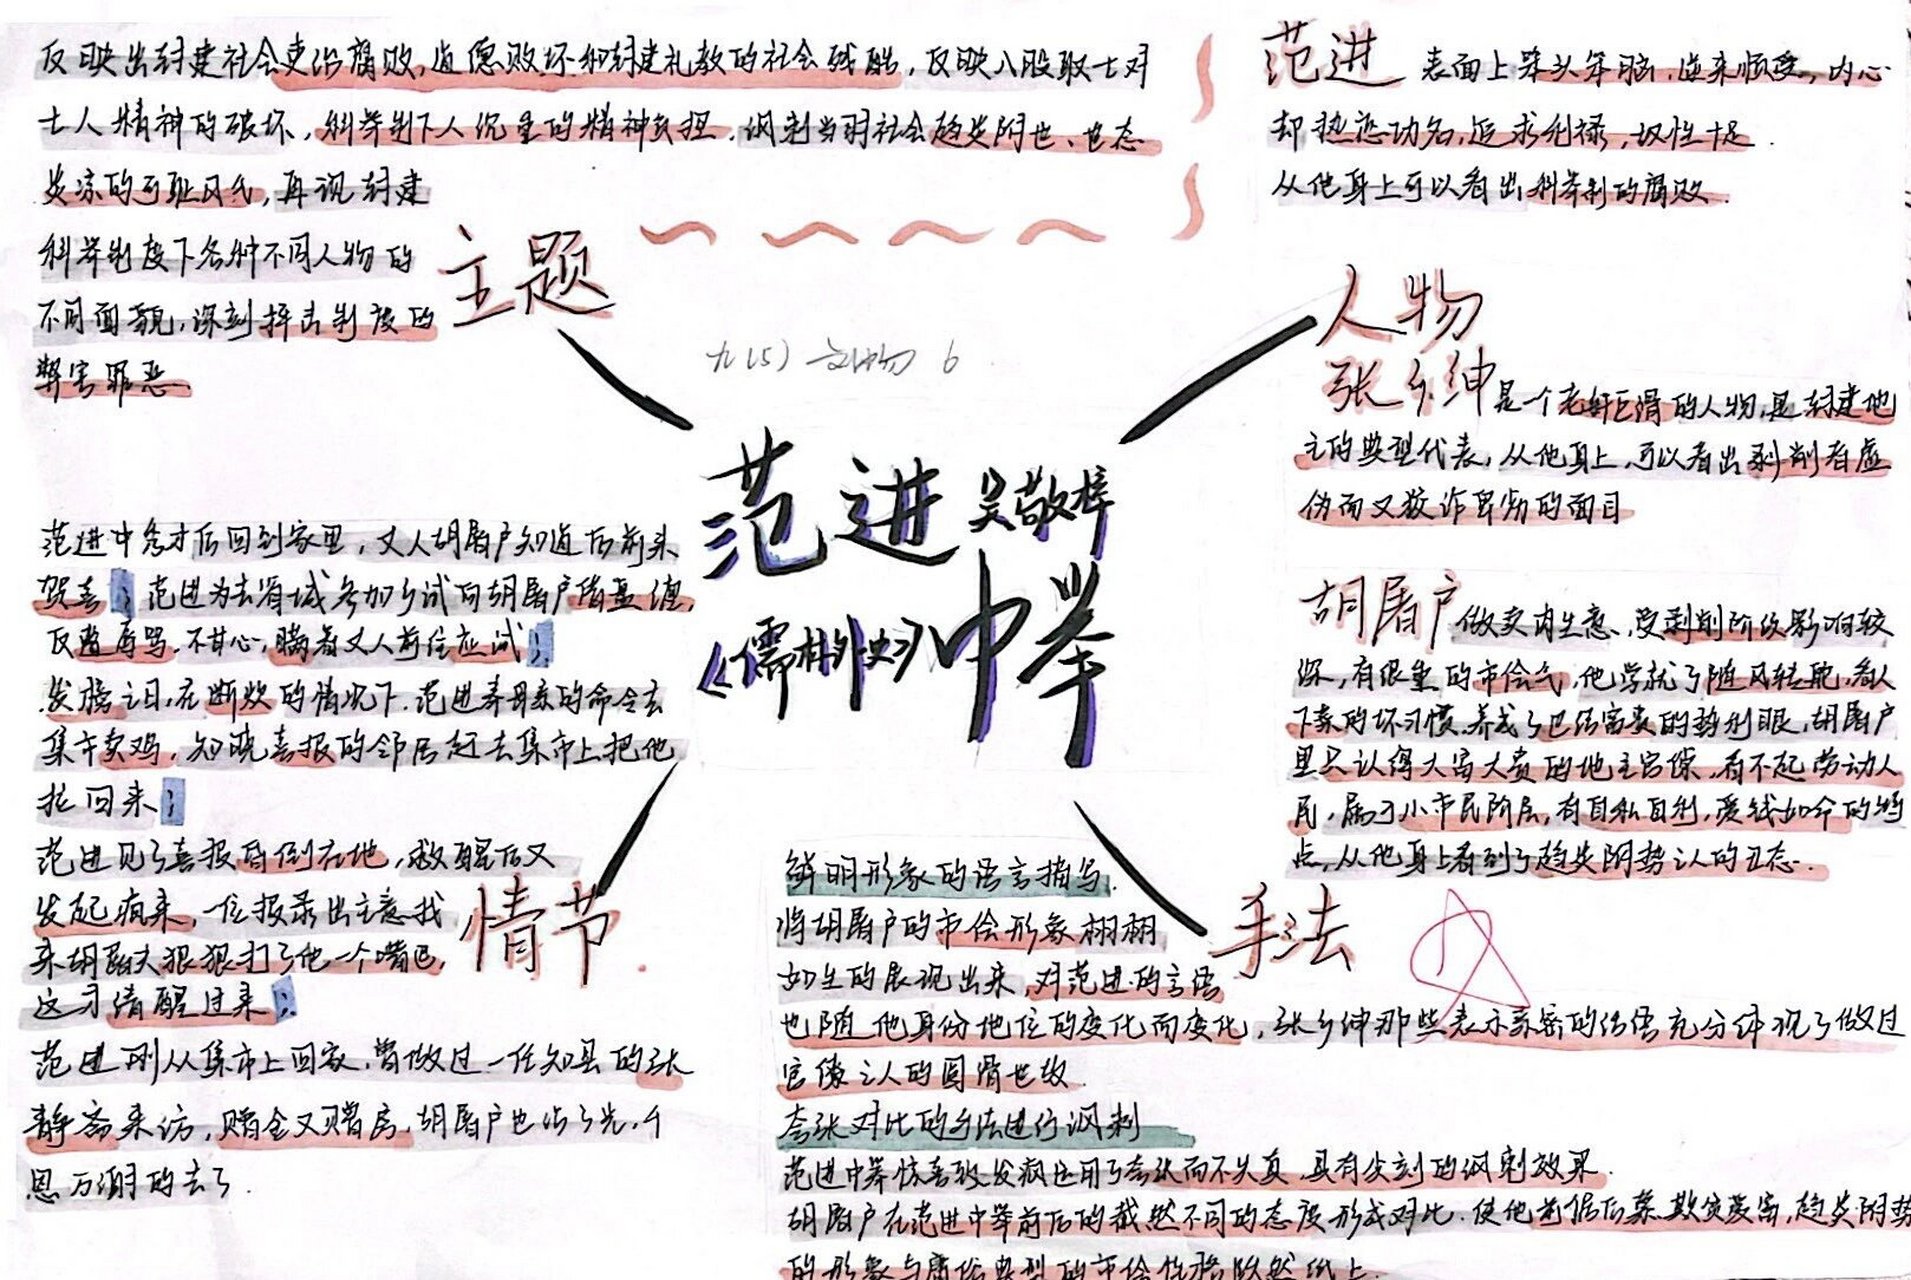 反映出封建社会吏治腐败,道德败坏和封建礼教的社会残酷,反映八股取士对
士人精神的破坏,科举制下人沉重的精神负担.讽刺当朝社会趋炎附世、世态
炎凉的可耻风气,再现封建
科举制度下各种不同人物的
不同面貌,深刻抨击制度的
弊害罪恶
主题
范进 表面上笨头笨脑.逆来顺受,内心
却热恋功名,追求利禄,奴性十足.
从他身上可以看出科举制的腐败.
人物
张乡绅是一个老奸巨滑的人物,是封建地
主的典型代表,从他身上,可以看出剥削者虚
伪而又狡诈卑劣的面目
胡屠户做卖肉生意、受剥削阶级影响较
深,有很重的市侩气,他学就了随风转舵,看人
下菜的坏习惯.养成了巴结富贵的势利眼,胡屠户
里只认得大富大贵的地主官僚,看不起劳动人
民,属于小市民阶层,有自私自利,爱钱如命的特
点,从他身上看到了趋炎附势认的丑态.
九(5) 6
范进 吴敬梓
《儒林外史》中举
范进中秀才后回到家里,丈人胡屠户知道后前来
贺喜;范进为去省城参加乡试向胡屠户借盘缠,
反遭辱骂.不甘心,瞒着丈人前往应试;
发榜之日,在断炊的情况下.范进奉母亲的命令去
集市卖鸡,知晓喜报的邻居赶去集市上把他
拉回来;
范进见了喜报昏倒在地,救醒后又
发起疯来,一位报录出主意找
来胡屠夫狠狠打了他一个嘴巴,
这才清醒过来;
范进刚从集市上回家,曾做过一任知县的张
静斋来访,赠金又赠房,胡屠户也沾了光,千
恩万谢的去了.
情节
手法
鲜明形象的语言描写.
将胡屠户的市侩形象栩栩
如生的展现出来,对范进的言语
也随他身份地位的变化而变化,张乡绅那些表示亲密的话语充分体现了做过
官僚之人的圆滑世故
夸张对比的手法进行讽刺
范进中举惊喜致发疯运用了夸张而不失真,具有尖刻的讽刺效果.
胡屠户在范进中举前后的截然不同的态度形成对比.使他前倨后恭.欺贫爱富,趋炎附势
的形象与庸俗典型的市侩性格跃然纸上.